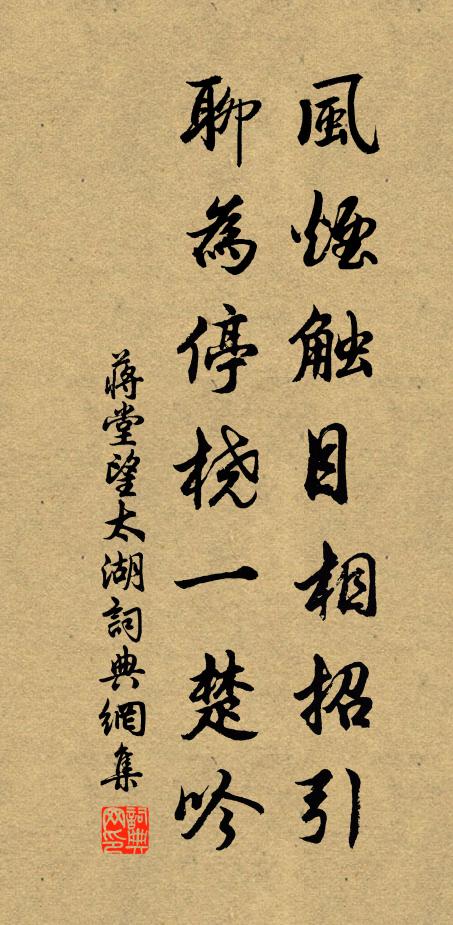 風煙触目相招引
聊為停桡一楚吟
蔣堂望太湖詞典網集
詞典网印